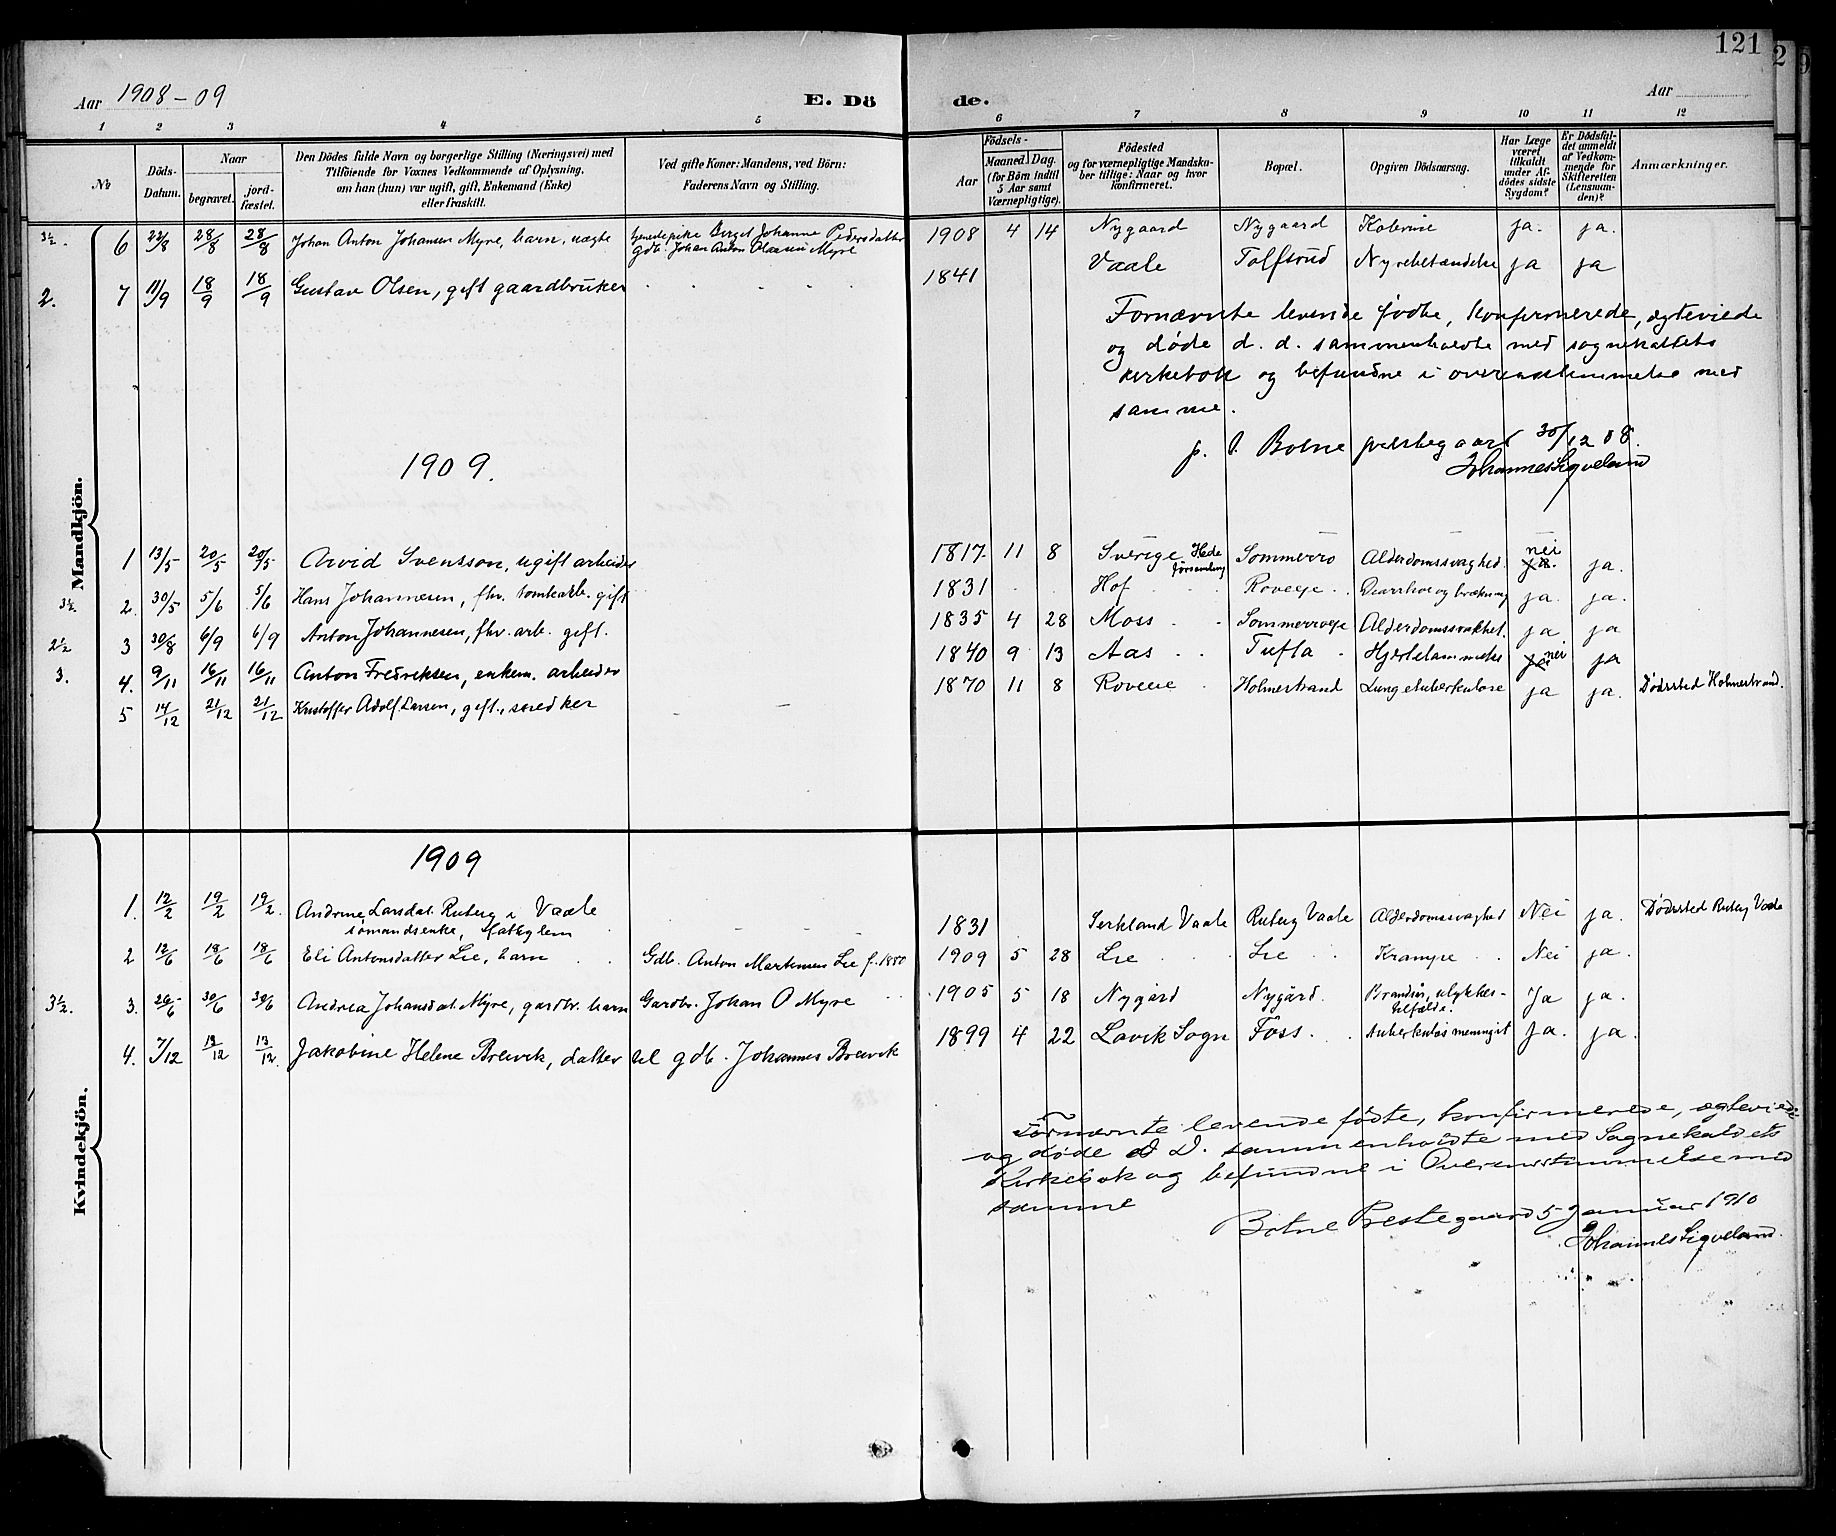 121
Aar 1908-09 E. Dö
de. Aar
1 2 3 4 5
6 7 8 9 10 11 12
№ Döds-Datum. Naar begravet. jordfæstet. Den Dödes fulde Navn og borgerlige Stilling (Næringsvei) med Tilföiende for Voxnes Vedkommende af Oplysning, om han (hun) var ugift, gift, Enkemand (Enke) eller fraskilt. Ved gifte Koner: Mandens, ved Börn: Faderens Navn og Stilling.
Födsels- Aar Maaned Dag. (for Börn indtil 5 Aar samt Værnepligtige). Födested og for værnepligtige Mandskaber tillige: Naar og hvor konfirmeret. Bopæl. Opgiven Dödsaarsag. Har Læge været tilkaldt under Afdödes sidste Sygdom? Er Dödsfaldet anmeldt af Vedkommende for Skifteretten (Lensmanden)? Anmærkninger.
Mandkjön.
3½. 6 22/8 28/8 28/8 Johan Anton Johansen Myre, barn, uægte tjenestepike Berget Johanne Pedersdatter
gdb. Johan Anton Olausen Myre
1908 4 14 Nygaard Nygaard Kolerine ja. ja.
2. 7 11/9 18/9 18/9 Gustav Olsen, gift gaardbruker
1841 Vaale Tolfsrud Nyrebetændelse ja ja
Fornævnte levende fødte, konfirmerede, ægteviede
og døde d. d. sammenholdte med sognekaldets
kirkebok og befundne i overensstemmelse med
samme.
Botne prestegaard 30/12 08.
Johannes Sigveland
1909.
1 13/5 20/5 20/5 Arvid Svensson, ugift arbeider
1817. 11 8 Sverige Hede församling Sommerro Alderdomssvaghed. nei ja. ja.
3½ 2. 30/5 5/6 5/6 Hans Johannesen, fhv. tomtearb. gift
1831 Hof Roveje Diarrhoe og brækning ja. ja.
2½ 3 30/8 6/9 6/9 Anton Johannesen, fhv. arb. gift.
1835 4 28 Moss Sommerroje Alderdomssvakhet. ja ja
3. 4. 9/11 16/11 16/11 Anton Fredriksen, enkem. arbeider
1840 9 13 Aas Tufta Hjertelammelse ja nei ja
5 14/12 21/12 21/12 Kristoffer Adolf Larsen, gift, snedker
1870 11 8 Roveie Holmestrand Lungetuberkulose ja ja. Dødssted Holmestrand.
Kvindekjön.
1909
1. 12/2 19/2 19/2. Andrine Larsdat. Ruberg i Vaale
sømandsenke,
1831 Serkland Vaale Ruberg Vaale Alderdomssvaghed Nei ja. Dødssted Ruberg Vaale
2 12/6 18/6 18/6 Eli Antonsdatter Lie, barn Gdb. Anton Martinsen Lie f. 1880
1909 5 28 Lie Lie Krampe Nei ja.
3½. 3. 26/6 30/6 30/6 Andrea Johansdat. Myre, gardbr. barn Gardbr. Johan O Myre
1905 5 18 Nygård Nygård. Brandsår, ulykkes-
tilfælde. Ja ja.
4. 7/12 13/12 13/12. Jakobine Helene Breivik, datter til gdb. Johannes Breivik
1899 4 22 Lavik Sogn Foss. Tuberkuløs meningit ja. ja.
Fornævnte levende fødte, konfirmerede, ægteviede
og døde d D. sammenholdte med Sognekaldets
Kirkebok og befundne i Overensstemmelse med
samme
Botne Prestegaard 5 Januar 1910
Johannes Sigveland.